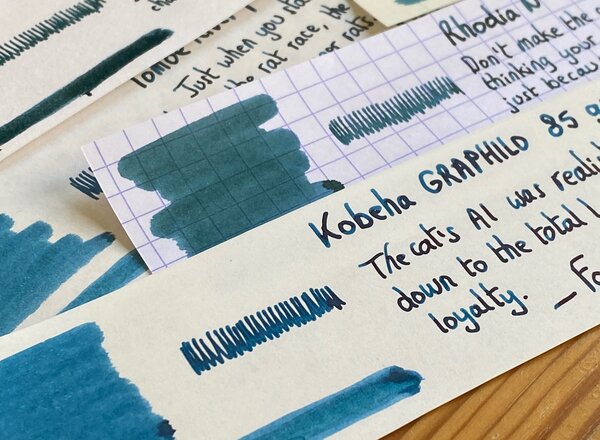 Tomoe River
Just when you
the rat race, the
rats.
Rhodia N
Don't make the
thinking your
just becau
Kobeha GRAPHILO 85 g
The cat's AI was realis
down to the total l
loyalty. — Fo